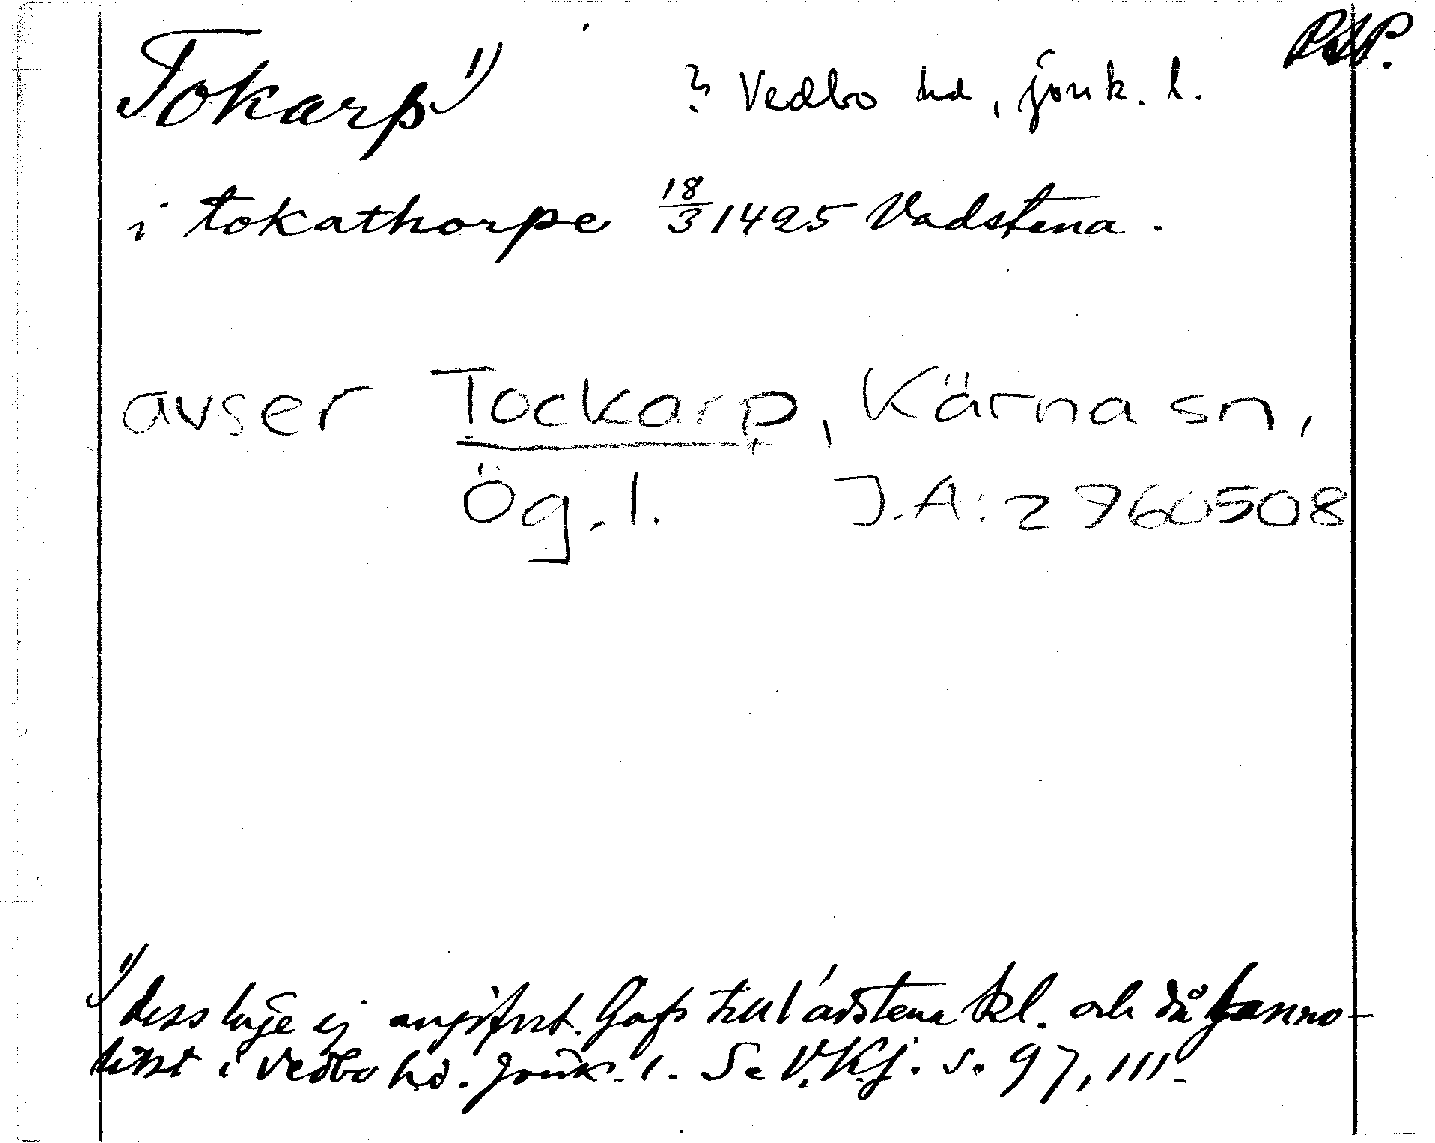 Tokarp 1) ? Vedbo hd, jönk. l. RAP.
i tokathorpe 18/3 1425 Vadstena.
avser Tockarp, Kärna sn,
Ög. l. J.A: 2760508
1) dess läge ej angifvet. Gafs till Vadstena kl. och då
i Vedbo hd. Jönk. l. Se V.Kj. s. 97, 111.